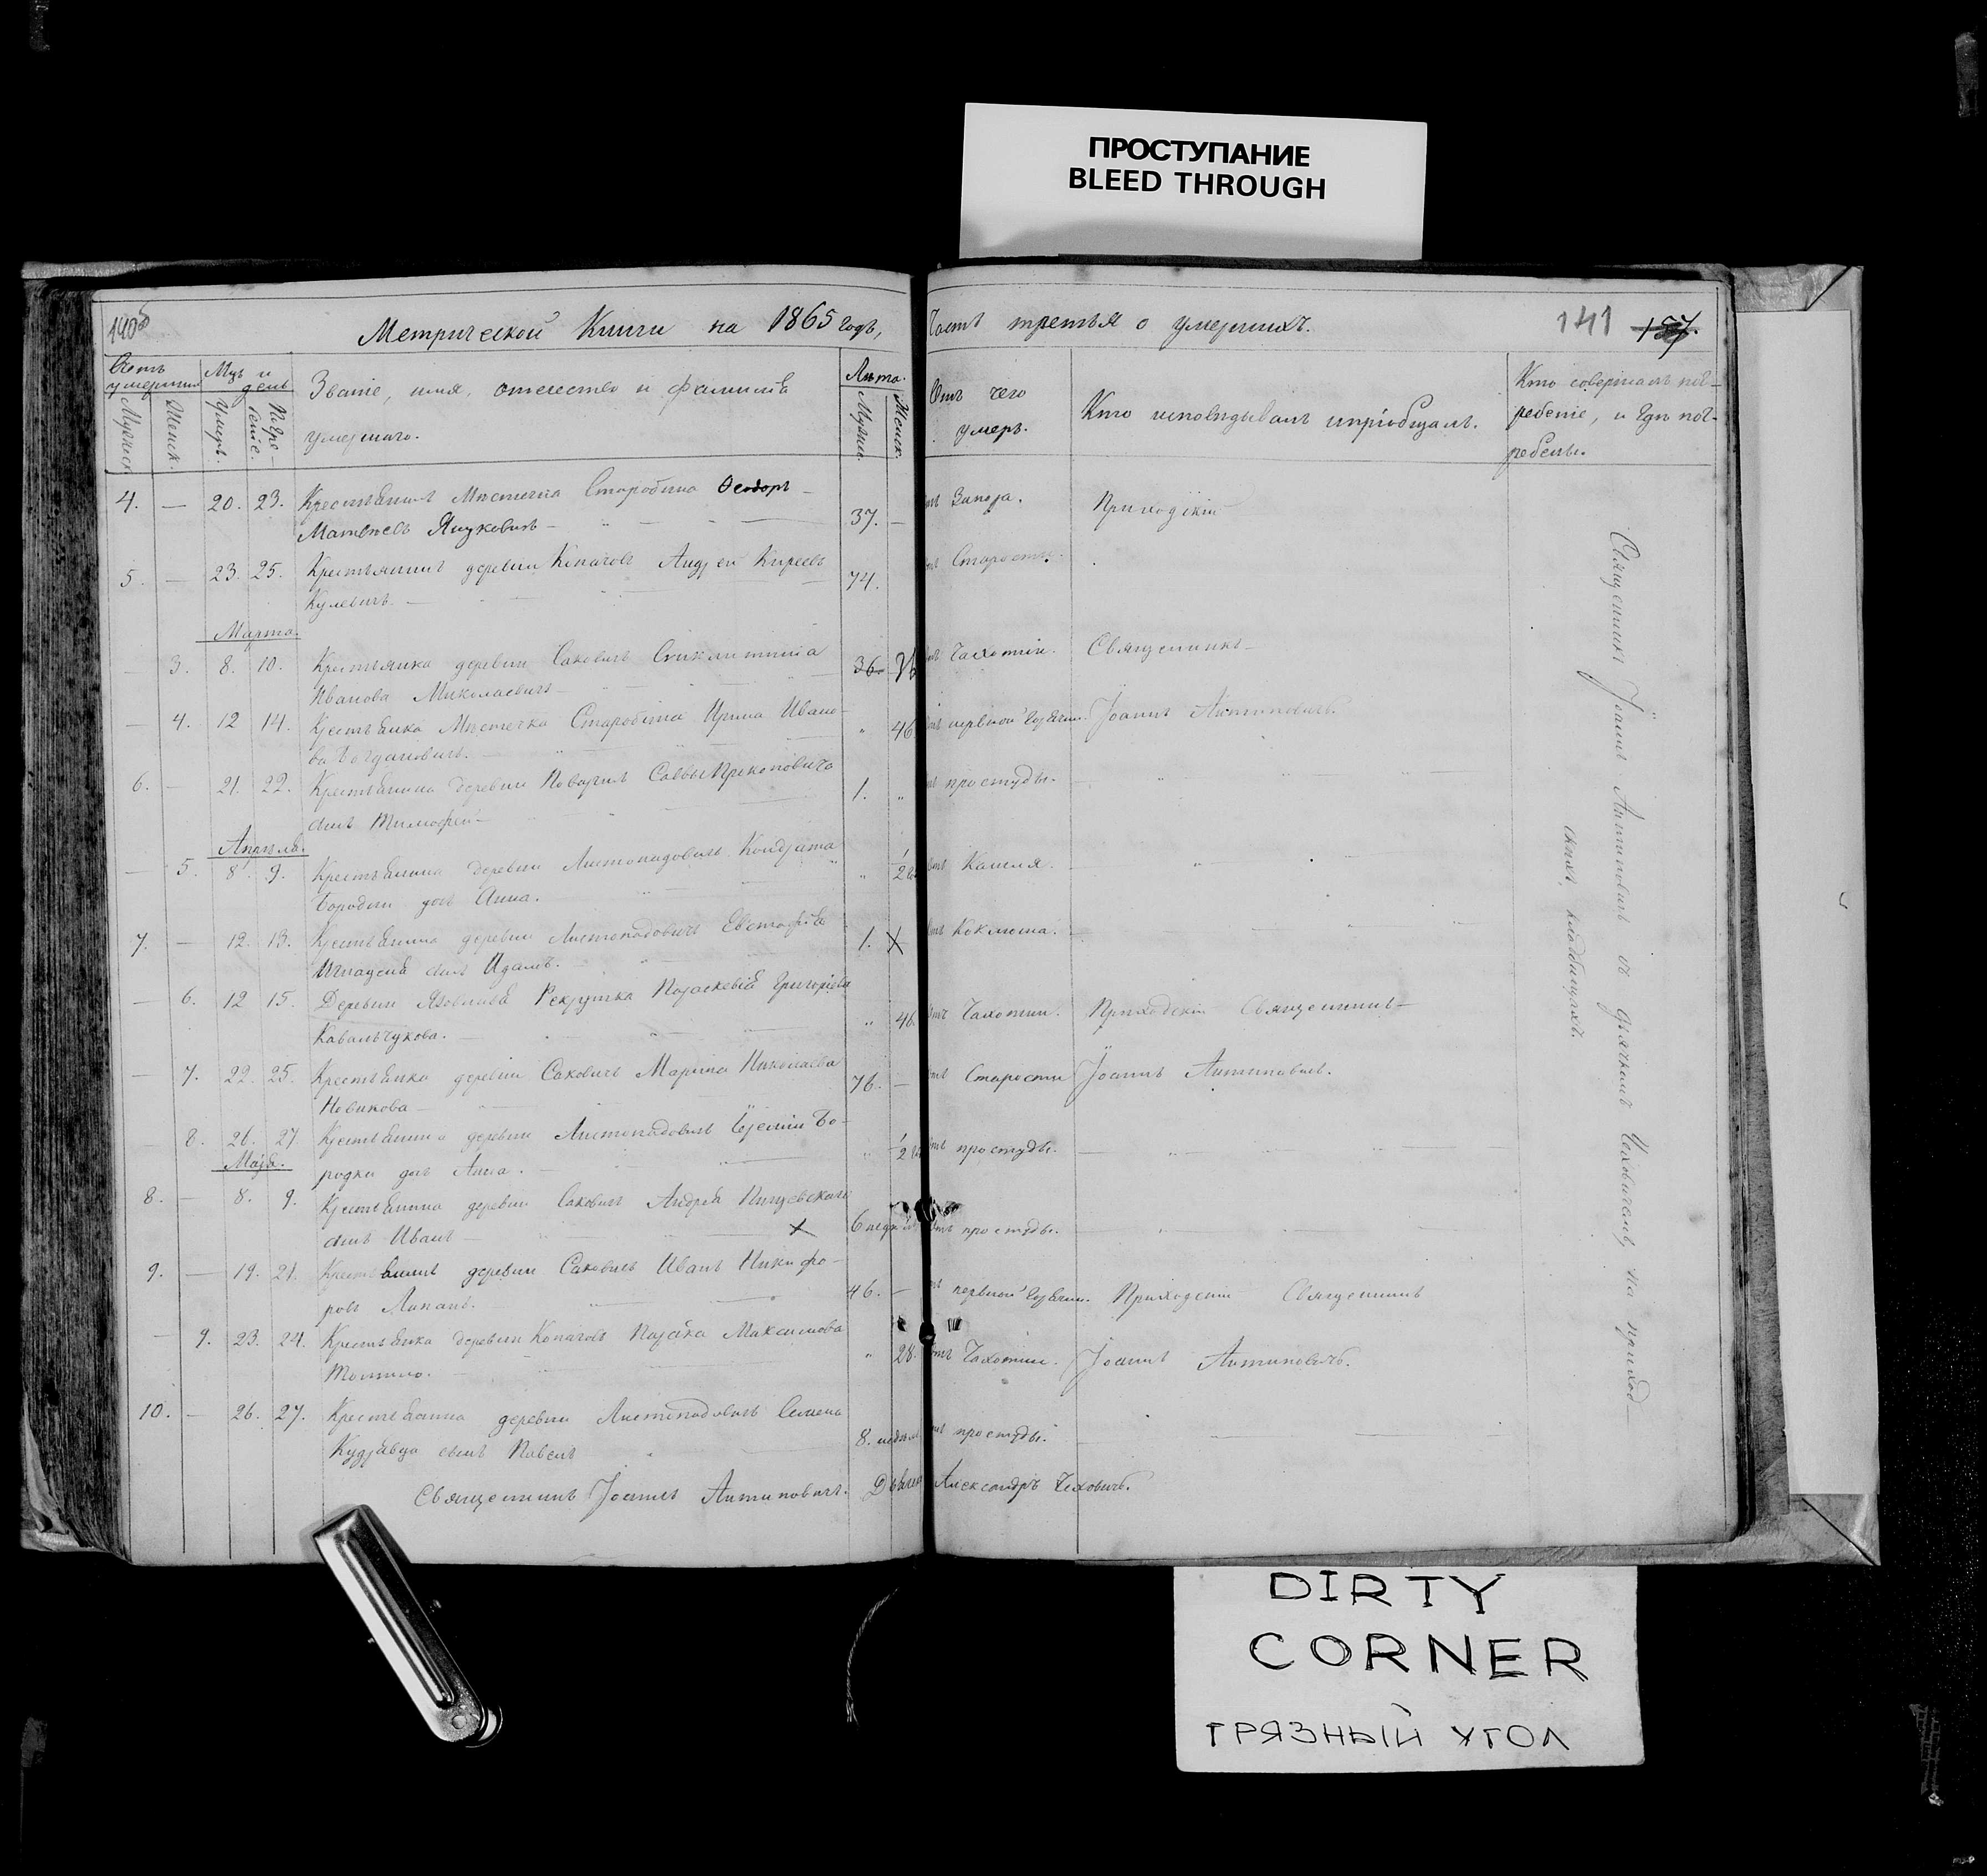 ПРОСТУПАНИЕ
BLEED THROUGH
140об
Метрической Книги на 1865 годъ,
Часть третья о умершихъ.
141 157.
Счетъ умершихъ
Мцъ и день
Званіе, имя, отечество и фамилія умершаго.
Лѣта.
Отъ чего умеръ.
Кто исповѣдывалъ и пріобщалъ.
Кто совершалъ погребеніе, и гдѣ погребены.
Мужск.
Женск.
Умеръ.
Погребеніе.
Мужск.
Женск.
4. — 20. 23. Крестьянинъ Мѣстечка Старобина Ѳеодоръ
Матвѣевъ Яцукевичъ — 37. — Отъ Запоя. Приходскій
5. — 23. 25. Крестьянинъ деревни Копачовъ Андрей Киреевъ
Кулевичъ. — 74. Отъ Старости.
Марта.
— 3. 8. 10. Крестьянка деревни Саковичъ
Иванова Миколаевичъ — 36 36 Отъ Чахотки. Священникъ
— 4. 12 14. Крестьянка Мѣстечка Старобина Ирина Ивано-
ва Богдановичъ. — 46 Отъ нервной горячки. Іоаннъ Антиповичъ.
6. — 21. 22. Крестьянина деревни Саввы Прокоповича
сынъ Тимофей — 1. Отъ простуды.
Апрѣля.
— 5. 8. 9. Крестьянина деревни Листопадовичъ Кондрата
Бородки дочь Анна. 1/2 Отъ Кашля.
7. — 12. 13. Крестьянина деревни Листопадовичъ Евстафія
сынъ Адамъ. — 1. Отъ Коклюша.
— 6. 12 15. Деревни Рекрутка Параскевія Григорьева
Ковальчукова. — 46. Отъ Чахотки. Приходскій Священникъ
— 7. 22. 25. Крестьянка деревни Саковичъ Марина Николаева
Новикова — 76. — Отъ Старости Іоаннъ Антиповичъ.
— 8. 26. 27. Крестьянина деревни Листопадовичъ Бо-
родки дочь Анна. 1/2 Отъ простуды.
Маія.
8. — 8. 9. Крестьянина деревни Саковичъ Андрея
сынъ Иванъ — 6 недѣль Отъ простуды.
9. — 19. 21. Крестьянинъ деревни Саковичъ Иванъ Никифо-
ровъ 46. — Отъ нервной горячки. Приходскій Священникъ
— 9. 23. 24. Крестьянка деревни Копачовъ Максимова
28. Отъ Чахотки. Іоаннъ Антиповичъ.
10. — 26. 27. Крестьянина деревни Листопадовичъ Семена
Кудрявца сынъ Павелъ 8. недѣль Отъ простуды.
Священникъ Іоаннъ Антиповичъ. Дьячекъ Александръ Чеховичъ.
Священникъ Іоаннъ Антиповичъ съ дьячкомъ Чеховичемъ, на приход
скихъ кладбищахъ.
DIRTY
CORNER
ГРЯЗНЫЙ УГОЛ